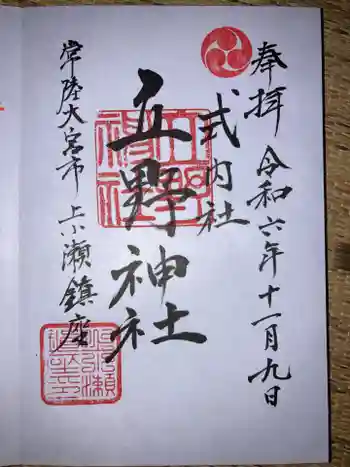 奉拝 令和六年十一月九日
式内社
立野神社
常陸大宮市上小瀬鎮座